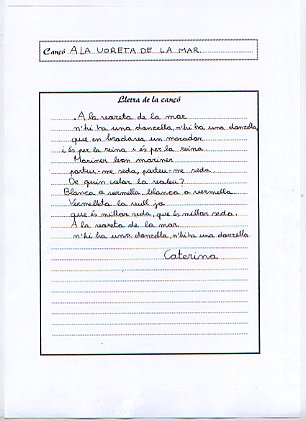 Cançó A LA VORETA DE LA MAR
Lletra de la cançó
A la voreta de la mar
n'hi ha una donzella, n'hi ha una donzella,
que en brodava un mocador
i és per la reina i és per la reina.
Mariner bon mariner
porteu-me seda, porteu-me seda.
De quin color la voleu?
Blanca o vermella blanca o vermella
Vermelleta la vull jo
que és millor seda, que és millor seda.
A la voreta de la mar
n'hi ha una donzella, n'hi ha una donzella
Caterina